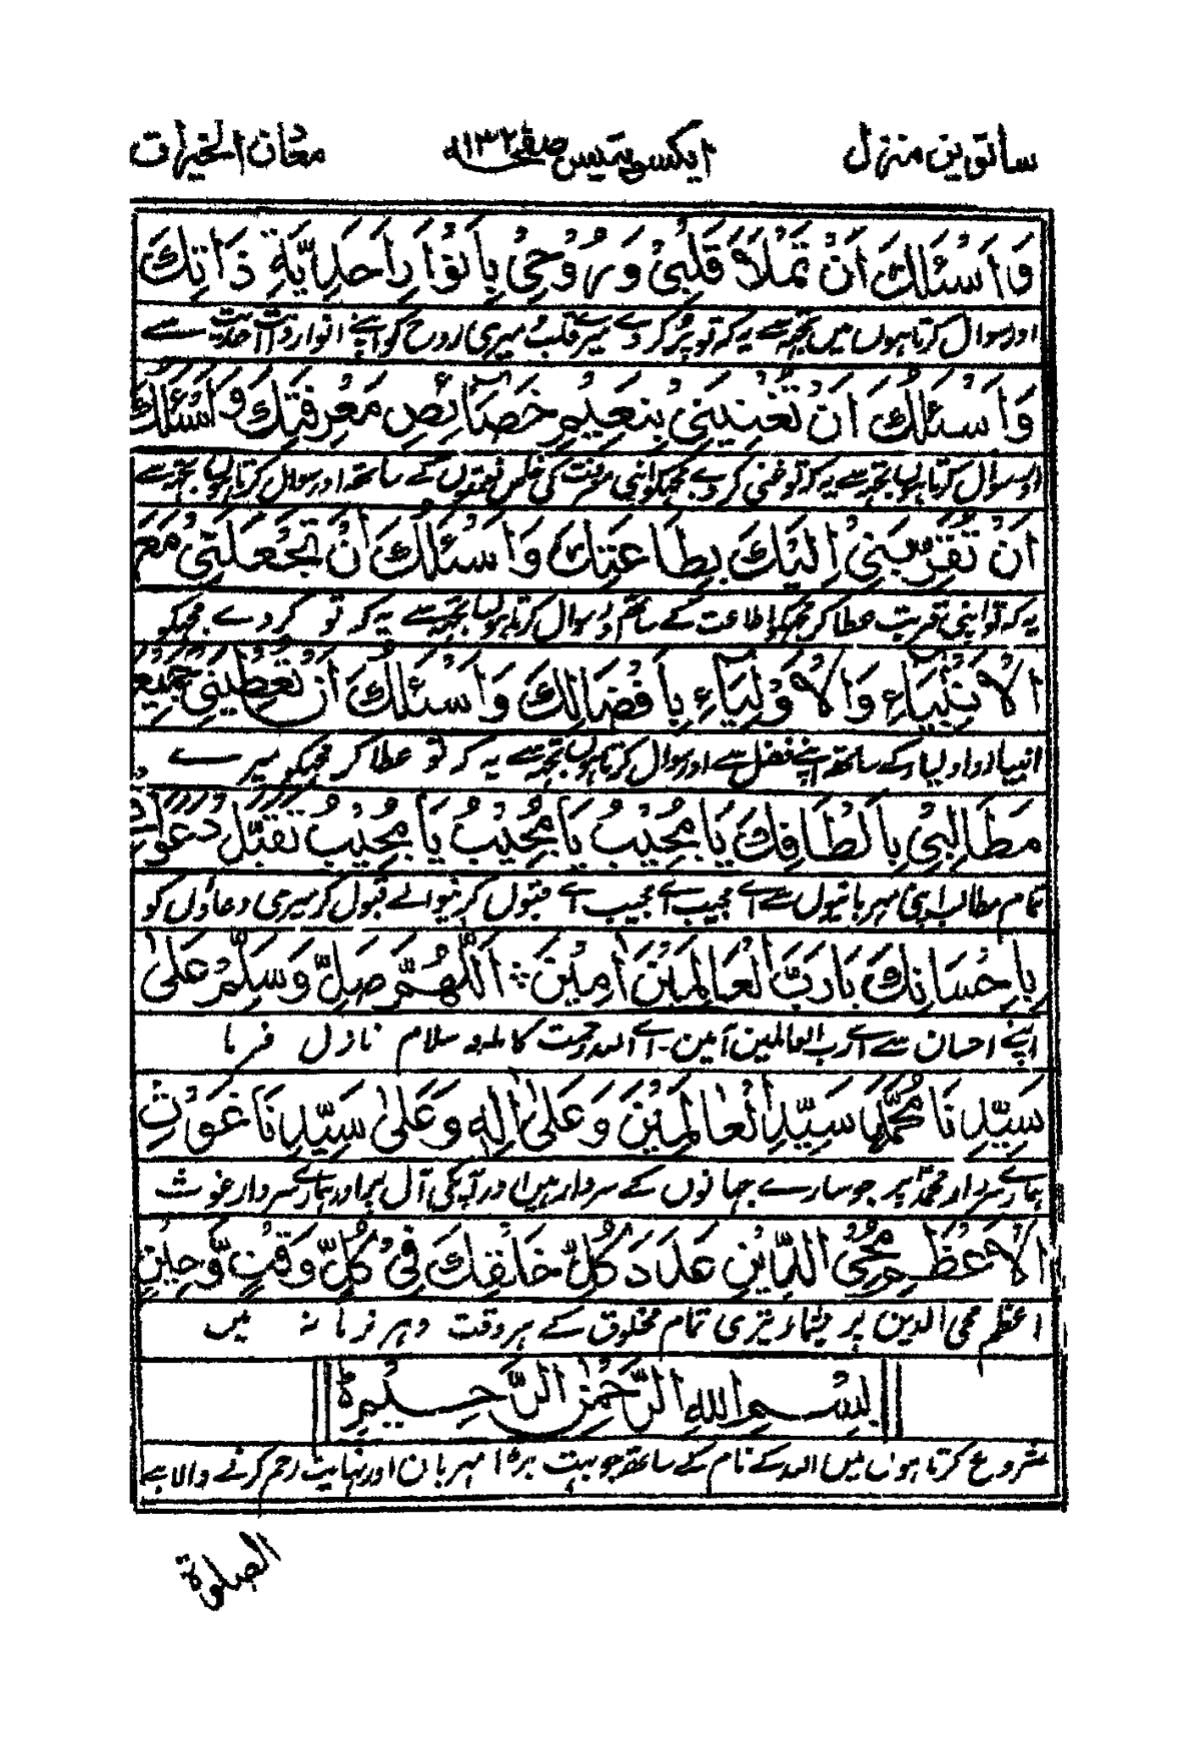 ساتویں منزل ایکسوبتیس صفحہ ۱۳۲ معدن الخیرات
وَاَسْئَلُكَ اَنْ تَمْلَأَ قَلْبِىْ وَرُوْحِىْ بِاَنْوَارِ اَحَدِيَّةِ ذَاتِكَ
اور سوال کرتا ہوں میں تجھ سے یہ کہ تو پُر کر دے میرے قلب میری روح کو اپنے انوار ذات احدیت سے
وَاَسْئَلُكَ اَنْ تُغْنِيَنِىْ بِنَعِيْمِ خَصَآئِصِ مَعْرِفَتِكَ وَاَسْئَلُكَ
اور سوال کرتا ہوں تجھ سے یہ کہ تو غنی کر دے مجھکو اپنی معرفت کی خاص نعمتوں کے ساتھ اور سوال کرتا ہوں تجھ سے
اَنْ تُقَرِّبَنِىْ اِلَيْكَ بِطَاعَتِكَ وَاَسْئَلُكَ اَنْ تَجْعَلَنِىْ مَعَ
یہ کہ تو اپنی قربت عطا کر مجھکو اطاعت کے ساتھ اور سوال کرتا ہوں تجھ سے یہ کہ تو کر دے مجھکو
الْاَنْبِيَآءِ وَالْاَوْلِيَآءِ بِاَفْضَالِكَ وَاَسْئَلُكَ اَنْ تُعْطِيَنِىْ جَمِيْعَ
انبیاء و اولیاء کے ساتھ اپنے فضل سے اور سوال کرتا ہوں تجھ سے یہ کہ تو عطا کر مجھکو میرے
مَطَالِبِىْ بِاَلْطَافِكَ يَا مُجِيْبُ يَا مُجِيْبُ يَا مُجِيْبُ تَقَبَّلْ دَعْوَاتِىْ
تمام مطالب اپنی مہربانیوں سے اے مجیب اے مجیب اے قبول کرنیوالے قبول کر میری دعاؤں کو
بِاِحْسَانِكَ يَا رَبَّ الْعَالَمِيْنَ اٰمِيْنَ ۞ اَللّٰهُمَّ صَلِّ وَسَلِّمْ عَلٰى
اپنے احسان سے اے رب العالمین آمین۔ اے اللہ رحمت کاملہ و سلام نازل فرما
سَيِّدِنَا مُحَمَّدٍ سَيِّدِ الْعَالَمِيْنَ وَعَلٰى اٰلِهٖ وَعَلٰى سَيِّدِنَا غَوْثِ
ہمارے سردار محمدؐ پر جو سارے جہانوں کے سردار ہیں اور آپ کی آل پر اور ہمارے سردار غوث
الْاَعْظَمِ مُحْىِ الدِّيْنِ عَدَدَ كُلِّ خَلْقِكَ فِىْ كُلِّ وَقْتٍ وَّحِيْنٍ
اعظم محی الدین پر بشمار تیری تمام مخلوق کے ہر وقت و ہر زمانہ میں
بِسْمِ اللهِ الرَّحْمٰنِ الرَّحِيْمِ
شروع کرتا ہوں میں اللہ کے نام کے ساتھ جو بہت بڑا مہربان اور نہایت رحم کرنے والا ہے
الصلوة